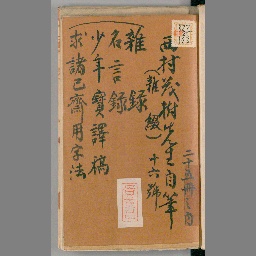 西村茂樹先生自筆
(雑綴)
十六號
雑録
名言録
少年寳譯稿
求諸己齋用字法
二十五冊之内